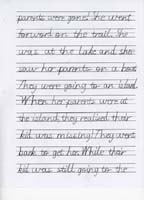 parents were gone! She went
forword on the trail. She
was at the Lake and she
saw her parents on a boat.
They were going to an island.
When her parents were at
the island, they realised their
kid was missing! They went
back to get her. While thair
kid was still going to the